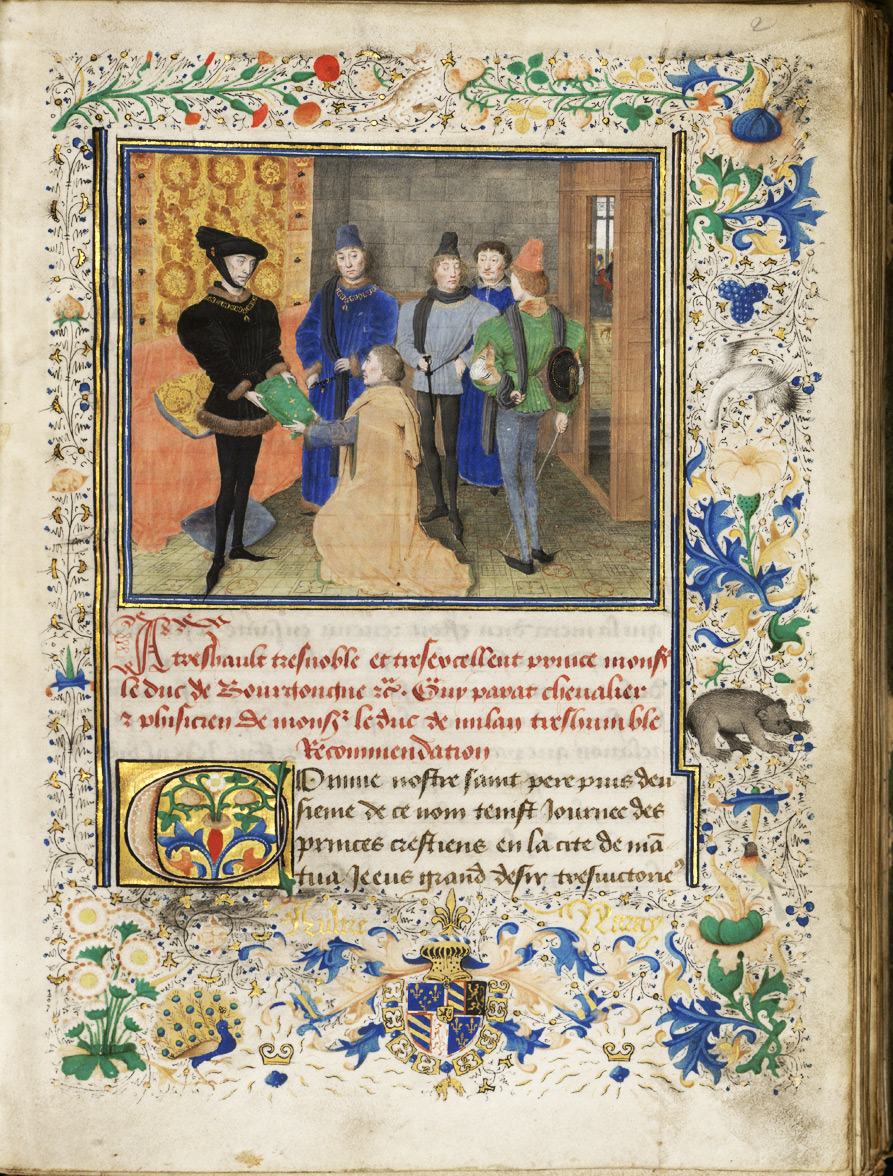 2
A treshault tresnoble et tresexcellent prince monss
le duc de Bourgongne &c. Guy parat chevalier
& phisicien de monsr le duc de milan treshumble
Recommendation
Comme nostre saint pere pius deu
sieme de ce nom tenist Journee des
princes crestiens en la cite de mã
tua Jeeus grand desir tresvictorie
Aultre Naray